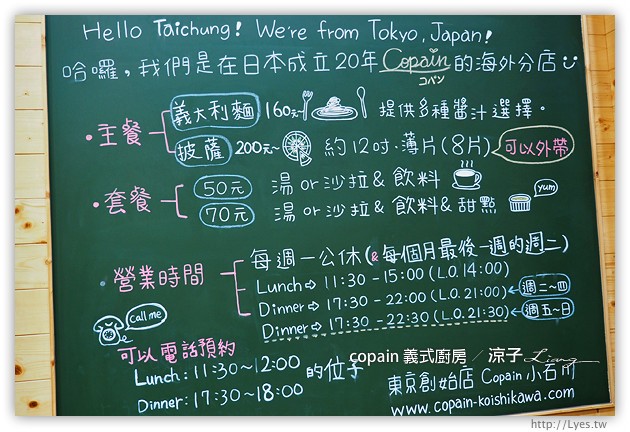 Hello Taichung! We're from Tokyo, Japan!
哈囉，我們是在日本成立20年 Copain コパン 的海外分店
・主餐
義大利麵 160元~ 提供多種醬汁選擇。
披薩 200元~ 約12吋・薄片(8片) 可以外帶
・套餐
50元 湯 or 沙拉 & 飲料
70元 湯 or 沙拉 & 飲料 & 甜點 yum
・營業時間
每週一公休(&每個月最後一週的週二)
Lunch⇨ 11:30 - 15:00 (L.O. 14:00)
Dinner⇨ 17:30 - 22:00 (L.O. 21:00) 週二~四
Dinner⇨ 17:30 - 22:30 (L.O. 21:30) 週五~日
Call me
可以電話預約
Lunch: 11:30~12:00
Dinner: 17:30~18:00
的位子
copain 義式廚房 / 涼子 Liang
東京創始店 Copain 小石川
www.copain-koishikawa.com
http://Lyes.tw